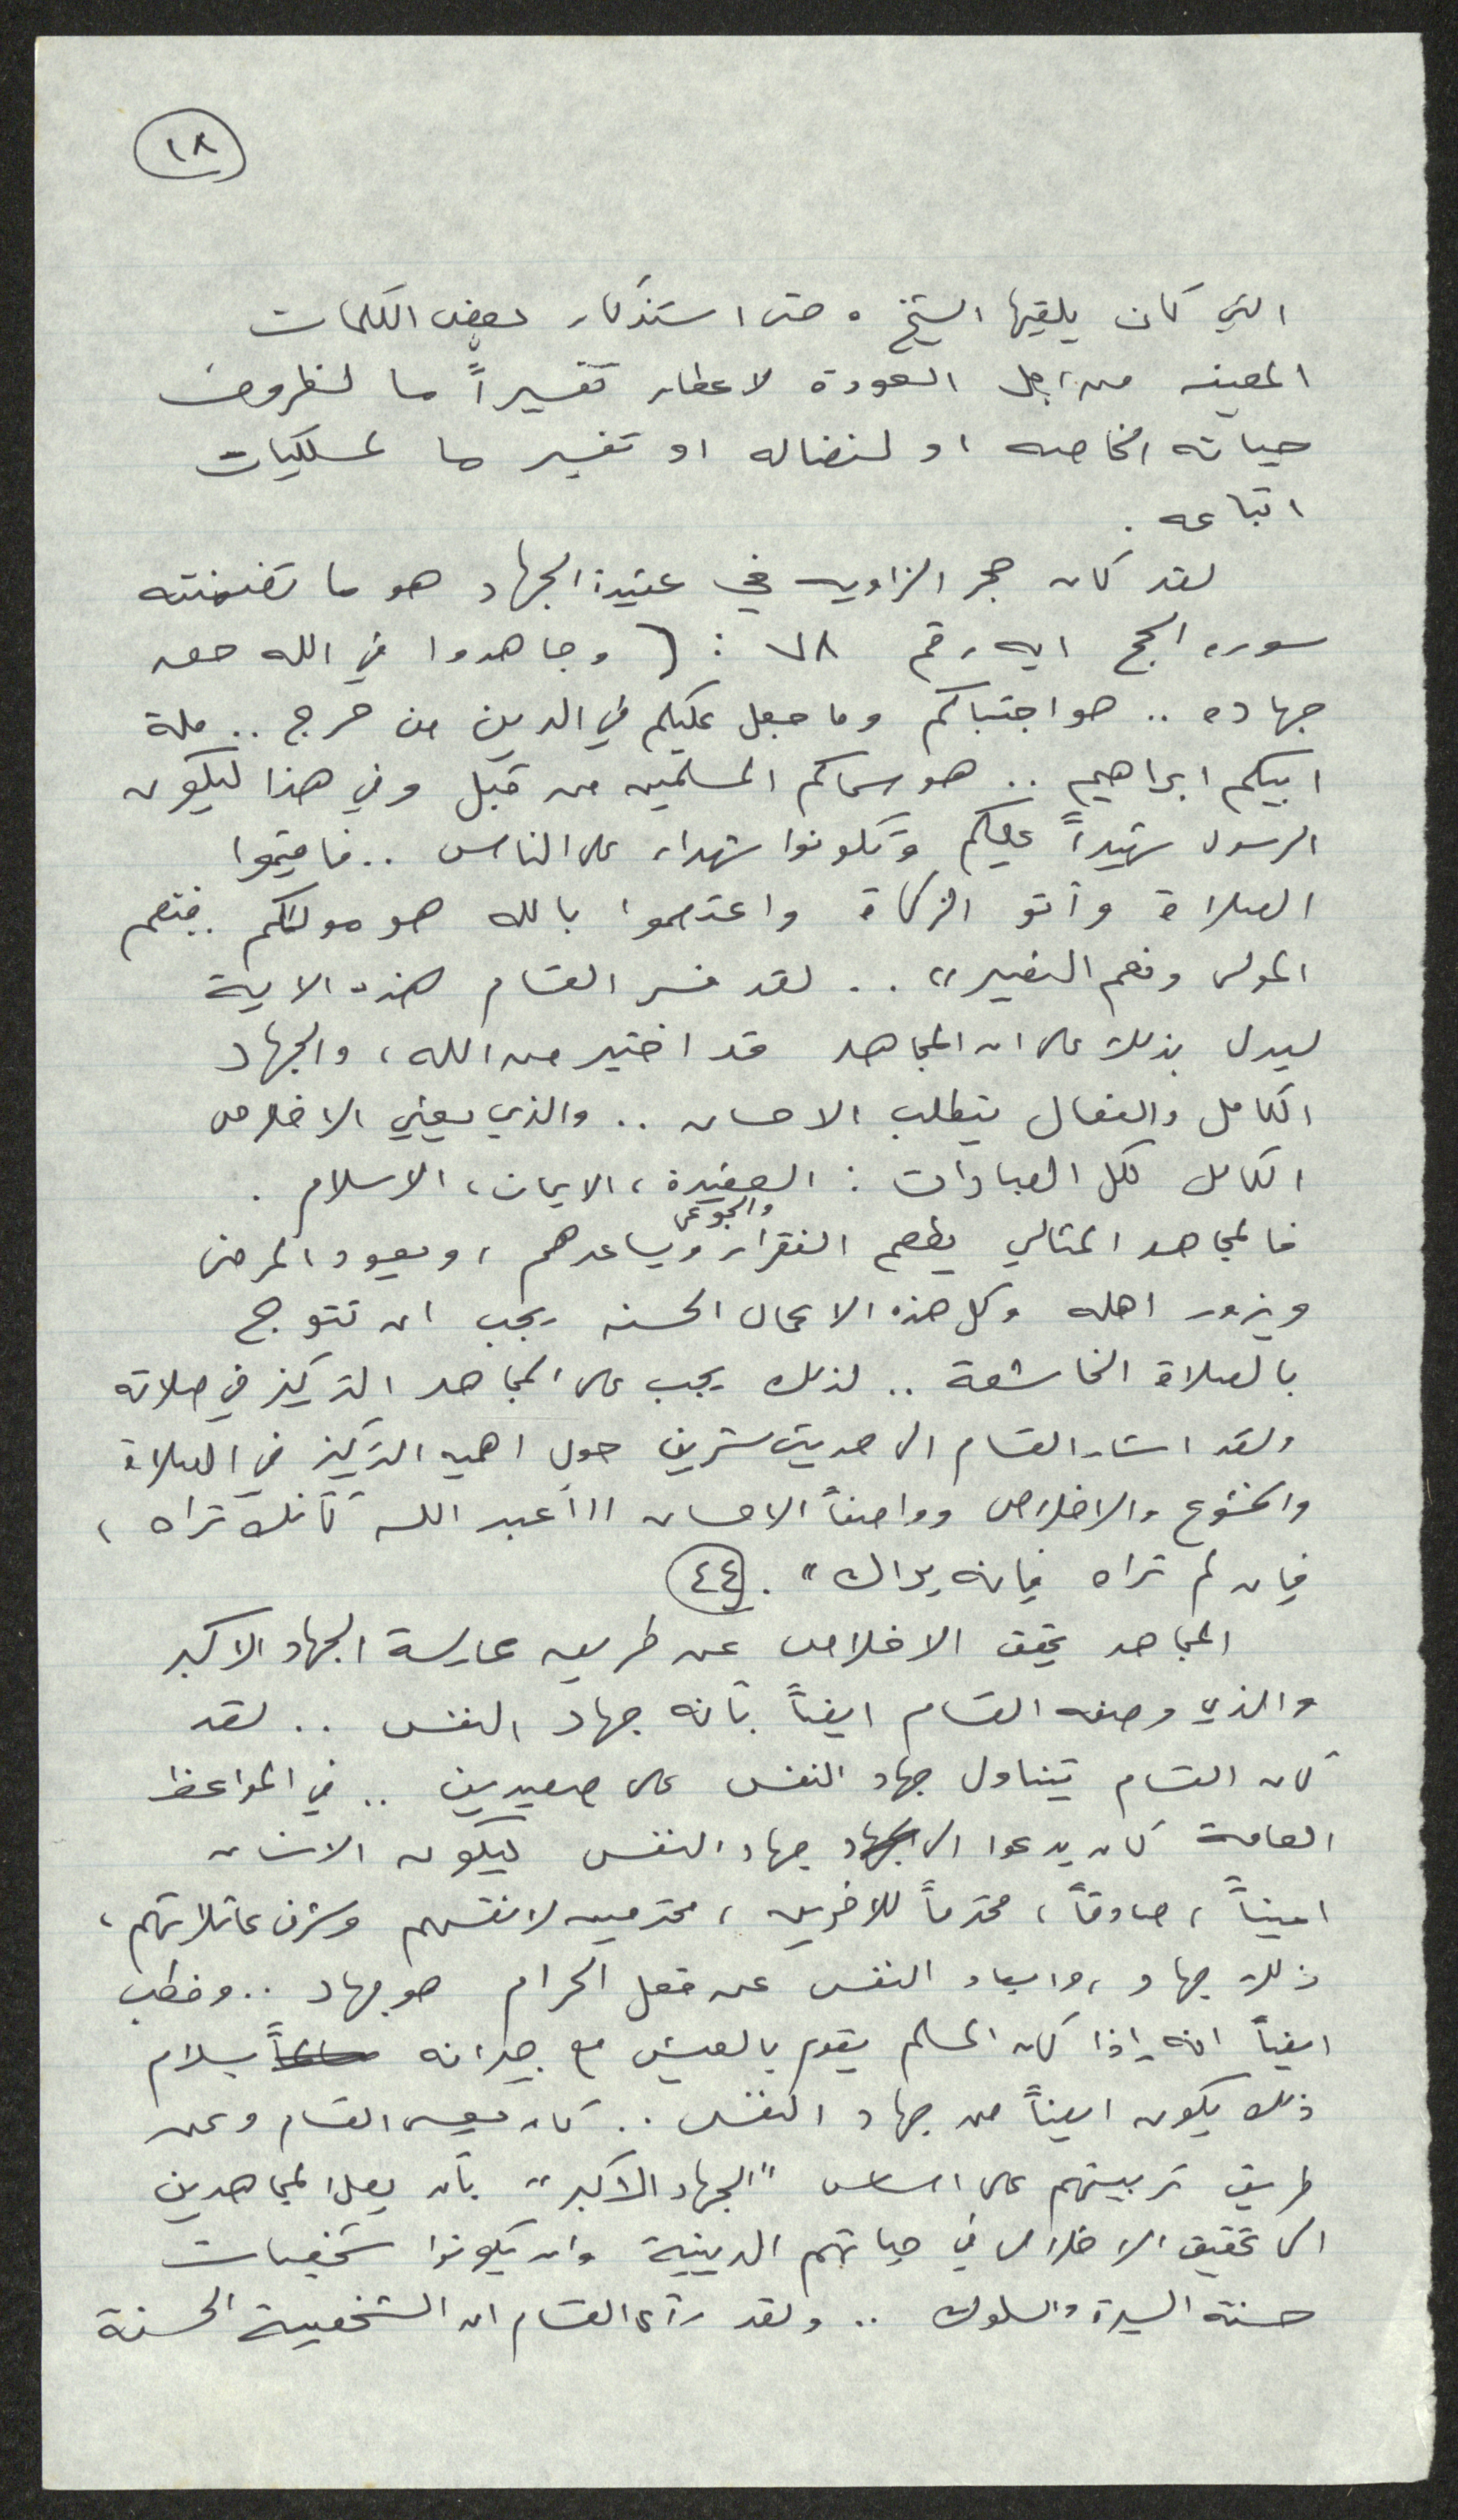 ١٨
التي كان يلقيها الشيخ . حتى استذكار بعض الكلمات
المعينه من اجل العودة لاعطاء تفسيراً ما لظروف
حياته الخاصه او لنضاله او تفسير ما لمسلكيات
اتباعه .
لقد كان حجر الزاويه في عقيدة الجهاد هو ما تضمنته
سوره الحج ايه رقم ٧٨ : ( وجاهدوا في الله حق
جهاده .. هو اجتباكم وما جعل عليكم في الدين من حرج .. ملة
ابيكم ابراهيم .. هو سماكم المسلمين من قبل وفي هذا ليكون
الرسول شهيداً عليكم وتكونوا شهداء على الناس .. فاقيموا
الصلاة وأتو الزكاة واعتصموا بالله هو مولاكم فنعم
المولى ونعم النصير " .. لقد فسر القسام هذه الاية
ليدل بذلك على ان المجاهد قد اختير من الله ، والجهاد
الكامل والفعال يتطلب الاحسان .. والذي يعني الاخلاص
الكامل لكل العبادات : العقيدة ، الايمان ، الاسلام .
فالمجاهد المثالي يطعم الفقراء والجوعى ويساعدهم ، ويعود المرضى
ويزور اهله وكل هذه الاعمال الحسنه يجب ان تتوج
بالصلاة الخاشعة .. لذلك يجب على المجاهد التركيز في صلاته
ولقد اشار القسام الى حديث شريف حول اهميه التركيز في الصلاة
والخشوع والاخلاص وواصفاً الاحسان " أعبد الله كأنك تراه ،
فإن لم تراه فإنه يراك " . ٤٤
المجاهد يحقق الاخلاص عن طريق ممارسة الجهاد الاكبر
والذي وصفه القسام ايضاً بأنه جهاد النفس .. لقد
كان القسام يتناول جهاد النفس على صعيدين .. في المواعظ
العامة كان يدعوا الى الجهاد جهاد النفس ليكون الانسان
اميناً ، صادقاً ، محترماً للاخرين ، محترمين لانفسهم وشرف عائلاتهم ،
ذلك جهاد ، وابعاد النفس عن فعل الحرام هو جهاد .. وخطب
ايضاً انه إذا كان المسلم يقوم بالعيش مع جيرانه بسلام
ذلك يكون ايضاً من جهاد النفس .. كان يسعى القسام وعن
طريق تربيتهم على اساس " الجهاد الاكبر " بأن يصل المجاهدين
الى تحقيق الاخلاص في حياتهم الدينية وان يكونوا شخصيات
حسنة السيرة والسلوك .. ولقد رأى القسام ان الشخصية الحسنة